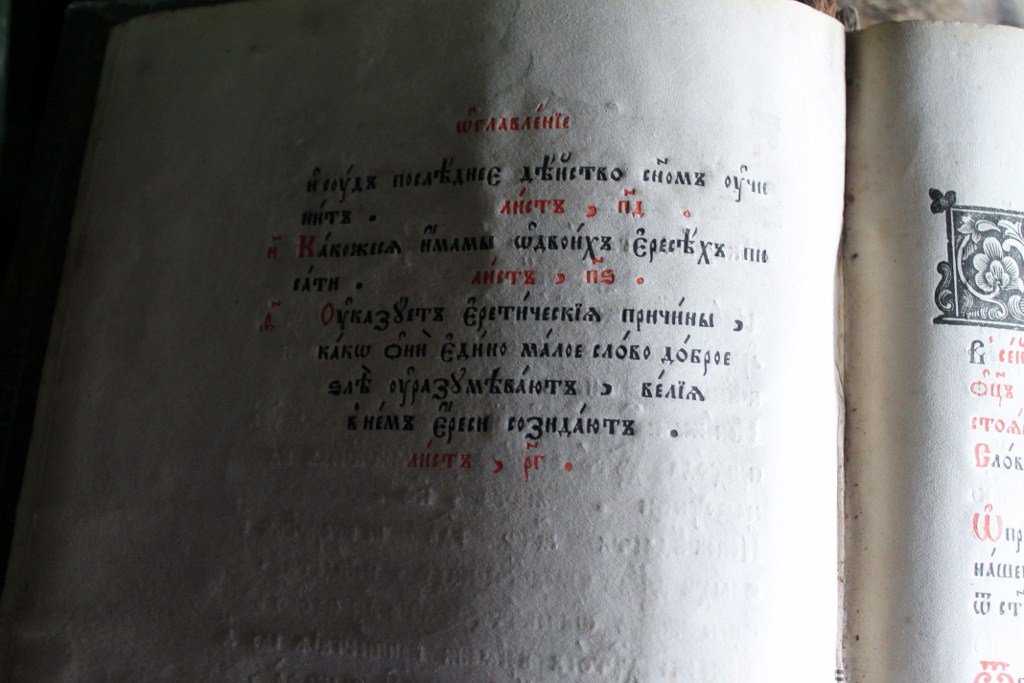 ѡ҆главле́нїе
и҆ соу́дъ послѣ́днеє дѣ́йство сн҃омъ оу҆чи
ни́тъ .
ли́стъ , п҃д .
и҃ Ка́кожеся и҆́мамы ѡ҆двои́хъ є҆ресѣ́хъ пи
са́ти .
ли́стъ , п҃ѕ .
д҃ Оу҆каз̾ꙋетъ є҆рети́ческїѧ причи́ны ,
ка́кѡ ѻ҆нѝ є҆ди́но ма́лое сло́во до́брое
ѕлѣ̀ оу҆разꙋмѣва́ютъ , ве́лїѧ
в не́мъ є҆́реси созида́ютъ .
ли́стъ , р҃г .
В
ѻ҆ц҃ъ
Сло́в
Ѡ҆ пр
на́ше
ѿ ст